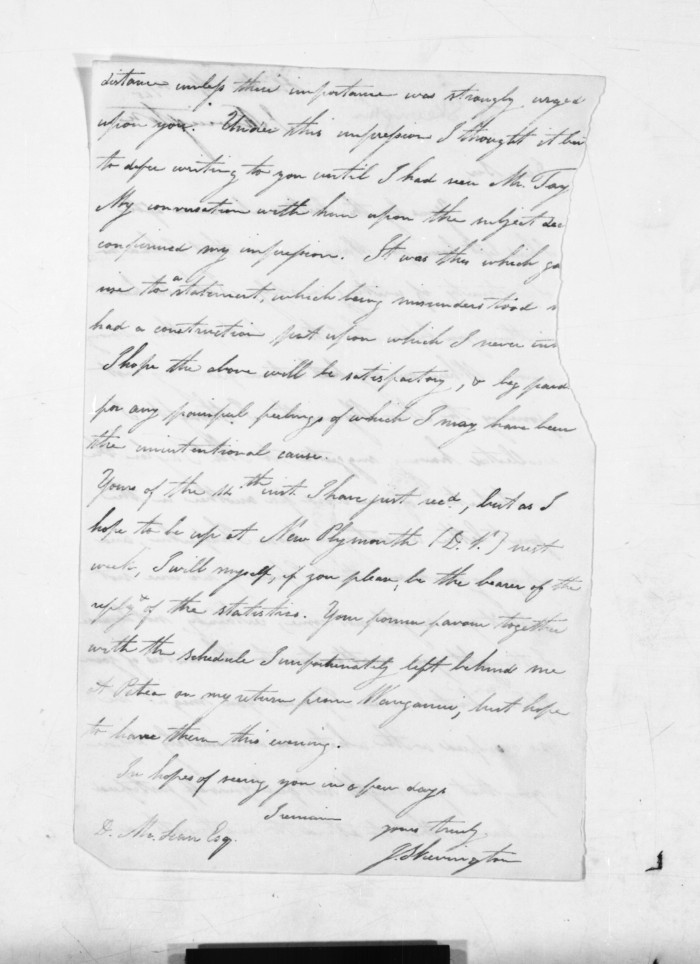 distance unless their importance was strongly urged
upon you. Under this impression I thought it bes
to defer writing to you until I had seen Mr. Tay
My conversation with him upon the subject
confirmed my impression. It was this which ga
rise to a statement, which being misunderstood
had a construction put upon which I never in
I hope the above will be satisfactory, & beg pard
for any painful feelings of which I may have been
the unintentional cause.
Yours of the 14th inst. I have just recd, but as I
hope to be up at New Plymouth (D. V.) next
week, I will myself, if you please, be the bearer of the
reply & of the statistics. Your former favour together
with the schedule I unfortunately left behind me
at Patea on my return from Wanganui, but hope
to have them this evening.
In hopes of seeing you in a few days
I remain
yours truly
D. McLean Esq.
J. Skevington